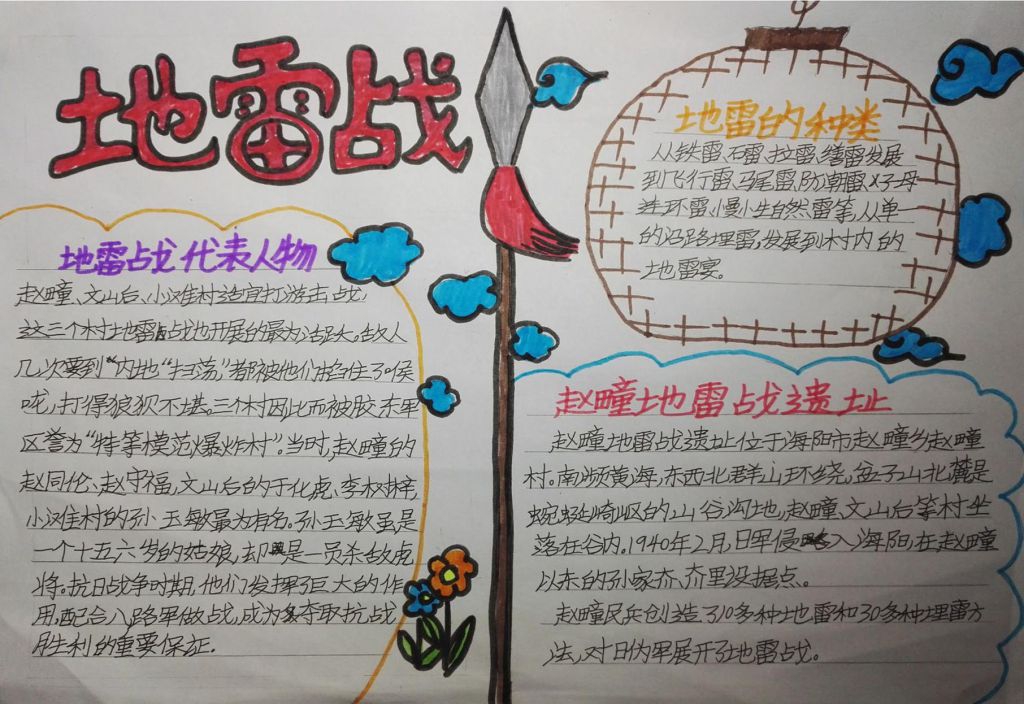 地雷战
地雷战代表人物
赵疃、文山后、小滩村适宜打游击战,
这三个村地雷战也开展的最为活跃。敌人
几次要到"内地"扫荡,都被他们掐住了喉
咙,打得狼狈不堪。三个村因此而被胶东军
区誉为"特等模范爆炸村"。当时,赵疃的
赵同伦、赵守福,文山后的于化虎、李权梓,
小滩村的孙玉敏最为有名。孙玉敏虽是
一个十五六岁的姑娘,却是一员杀敌虎
将。抗日战争时期,他们发挥了巨大的作
用,配合八路军做战,成为夺取抗战
胜利的重要保证.
地雷的种类
从铁雷、石雷、拉雷、绊雷发展
到飞行雷、马尾雷,防潮雷、子母
连环雷、慢小生自然雷等,从单一
的沿路埋雷,发展到村内的
地雷宴。
赵疃地雷战遗址
赵疃地雷战遗址位于海阳市赵疃乡赵疃
村。南濒黄海,东西北群山环绕,盆子山北麓是
蜿蜒崎岖的山谷沟地,赵疃、文山后等村坐
落在谷内。1940年2月,日军侵入海阳,在赵疃
以东的孙家夼、夼里设据点。
赵疃民兵创造了10多种地雷和30多种埋雷方
法,对日伪军展开了地雷战。